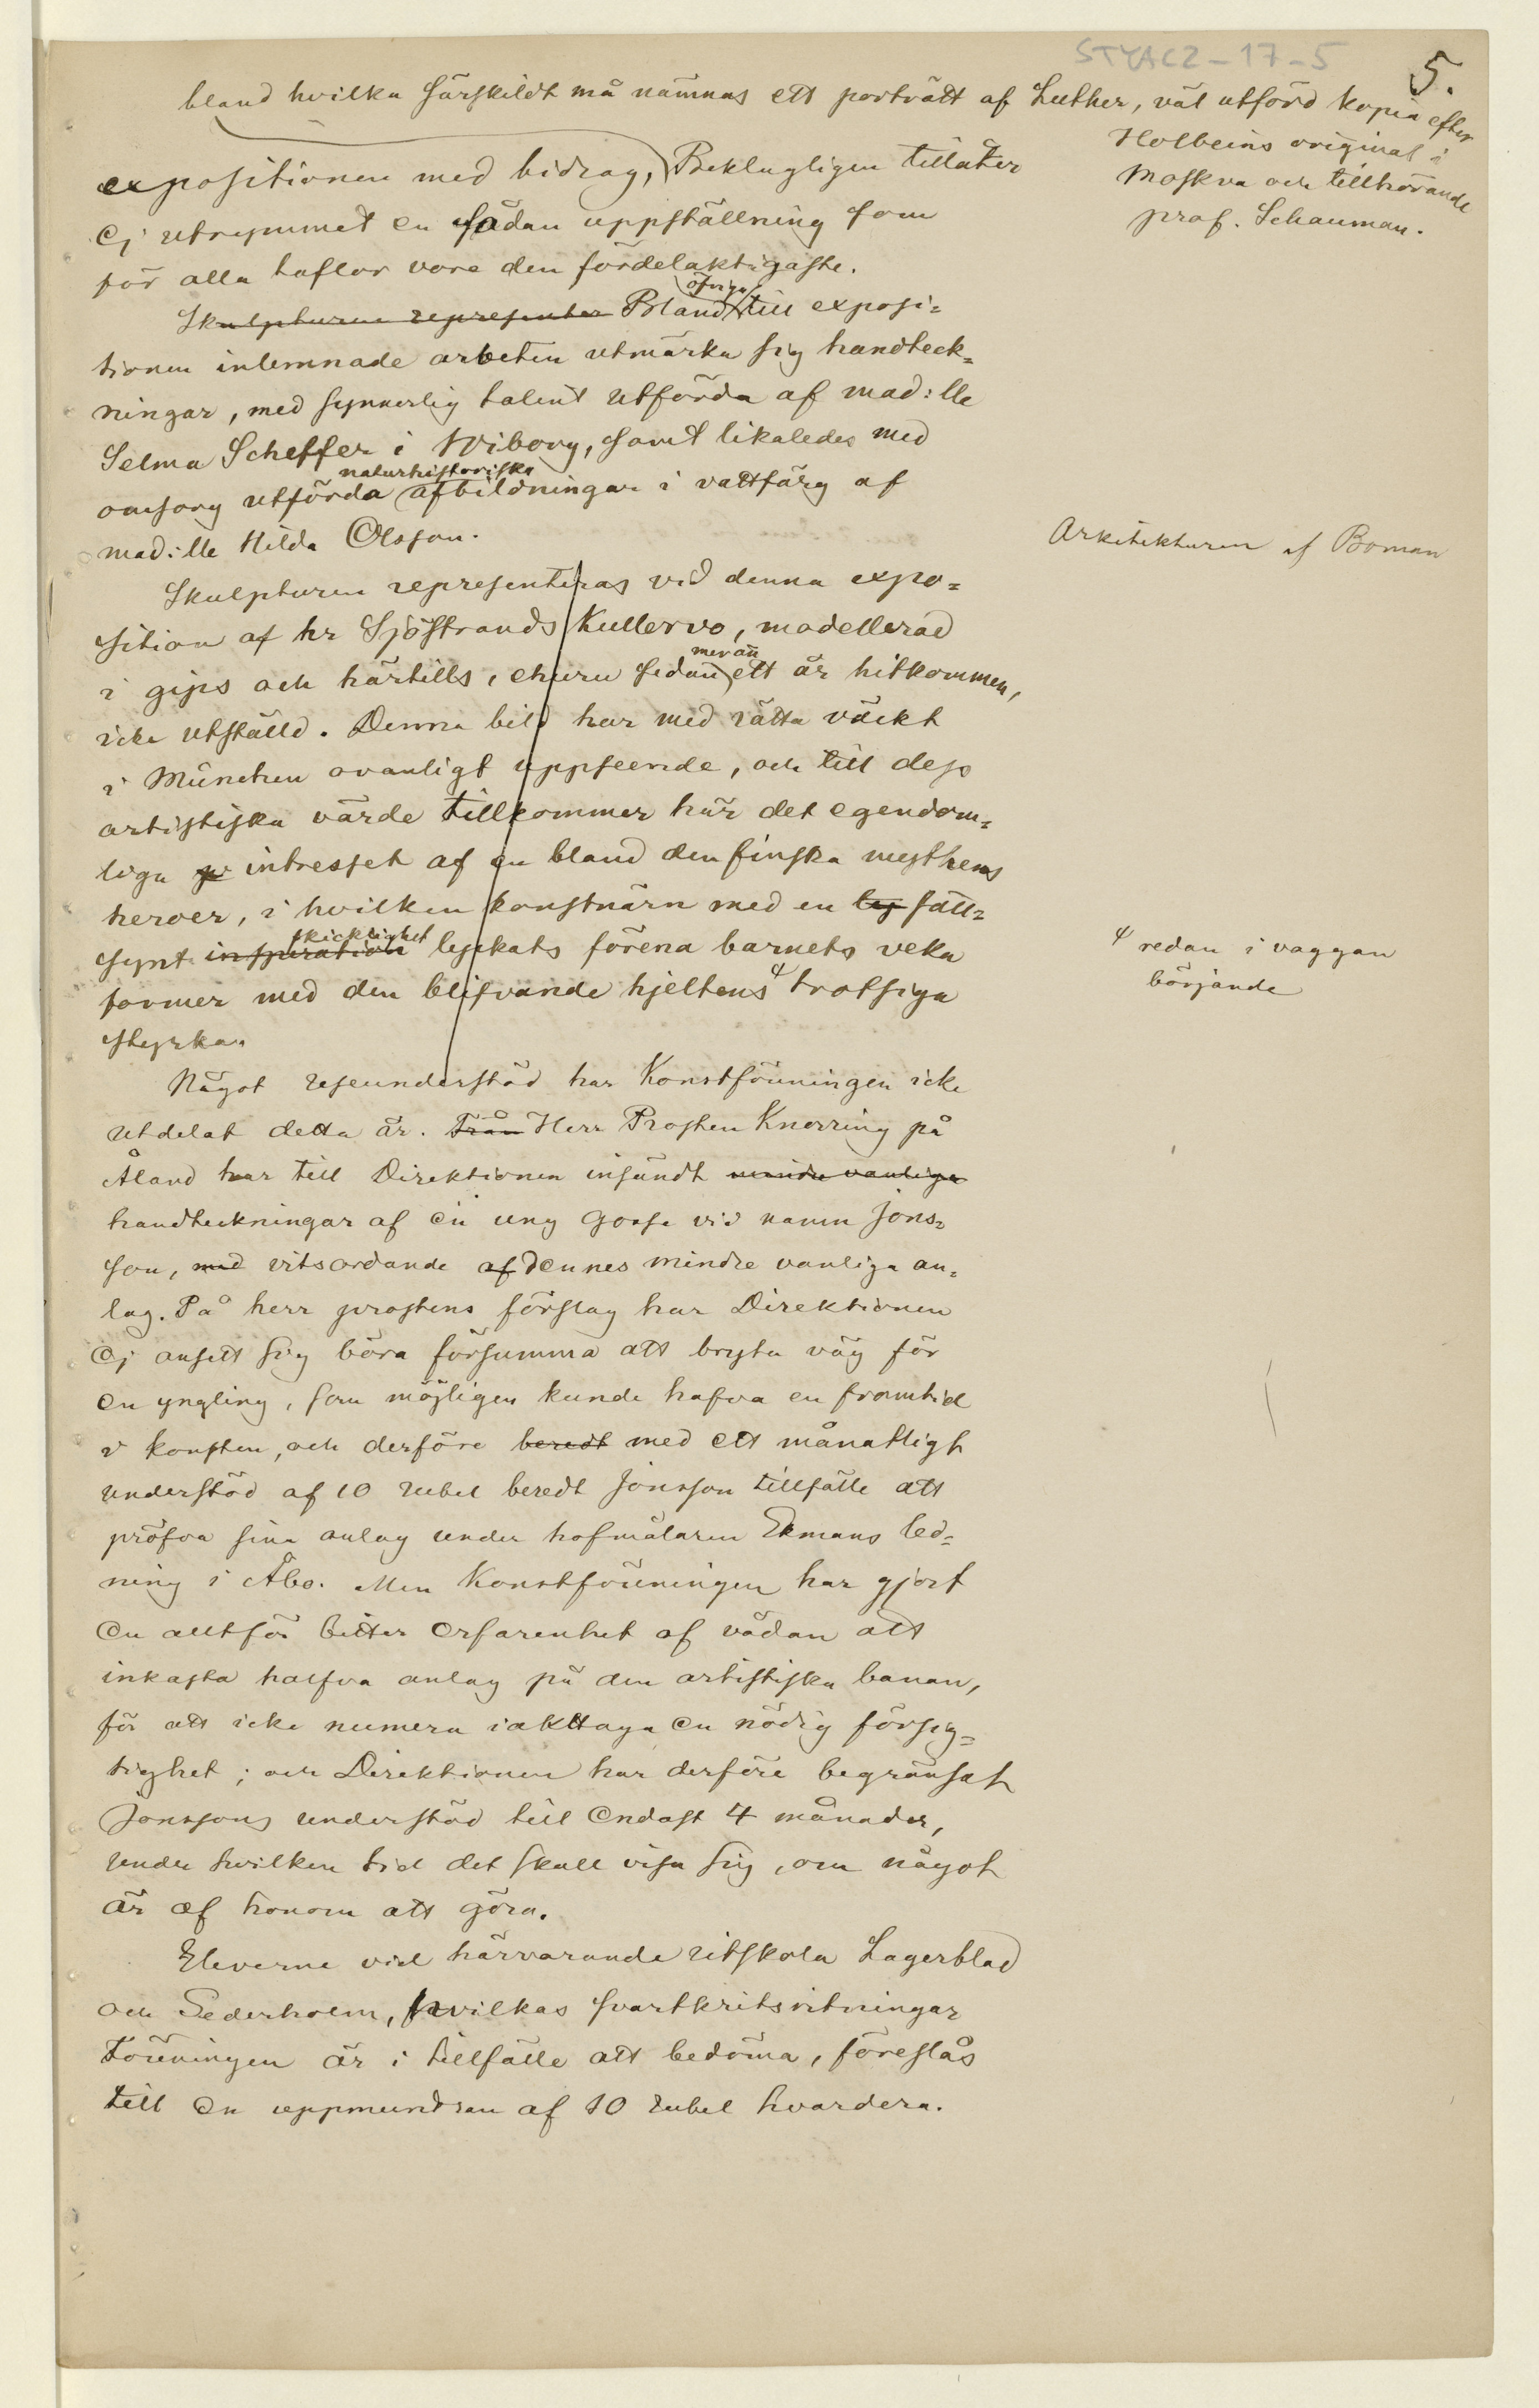 STYACZ-17-5
5.
bland hvilka särskildt må nämnas ett porträtt af Luther, väl utförd kopia efter
Holbeins original i
Moskva och tillhörande
prof. Schauman.
expositionen med bidrag, Beklagligen tillåter
Ej utrymmet en sådan uppställning som
för alla taflor vore den fördelaktigaste.
öfriga
Skulpturen representer Bland till exposi=
tionen inlemnade arbeten utmärka sig handteck=
ningar, med synnerlig talent utförda af mad:lle
Selma Scheffer i Wiborg, samt likaledes med
naturhistoriska
omsorg utförda afbildningar i vattfärg af
mad:lle Hilda Olsson.
Arkitekturen af Boman
Skulpturen representeras vid denna expo=
sition af hr Sjöstrands Kullervo, modellerad
mer än
i gips och härtills, ehuru sedan ett år hitkommen,
icke utställd. Denna bild har med rätta väckt
i München ovanligt uppseende, och till dess
artistiska värde tillkommer här det egendom=
liga intresset af en bland den finska mythens
heroer, i hvilken konstnärn med en säll=
skicklighet
synt inspiration lyckats förena barnets veka
former med den blifvande hjeltens trotsiga
redan i vaggan
börjande
styrka.
Något reseunderstöd har Konstföreningen icke
utdelat detta år. Från Herr Prosten Knorring på
Åland har till Direktionen insändt mindre vanliga
handteckningar af en ung gosse vid namn Jons=
son, med vitsordande af dennes mindre vanliga an=
lag. På herr prostens förslag har Direktionen
Ej ansett sig böra försumma att bryta väg för
en yngling, som möjligen kunde hafva en framtid
i konsten, och derföre beredt med ett månatligt
understöd af 10 rubel beredt Jonsson tillfälle att
pröfva sina anlag under hofmålaren Ekmans led=
ning i Åbo. Men Konstföreningen har gjort
en alltför bitter erfarenhet af vådan att
inkasta halfva anlag på den artistiska banan,
för att icke numera iakttaga en nödig försig=
tighet; och Direktionen har derföre begränsat
Jonssons understöd till endast 4 månader,
under hvilken tid det skall visa sig, om något
är af honom att göra.
Eleverne vid härvarande ritskola Lagerblad
och Sederholm, hvilkas svartkritsritningar
Föreningen är i tillfälle att bedöma, föreslås
till en uppmuntran af 10 rubel hvardera.